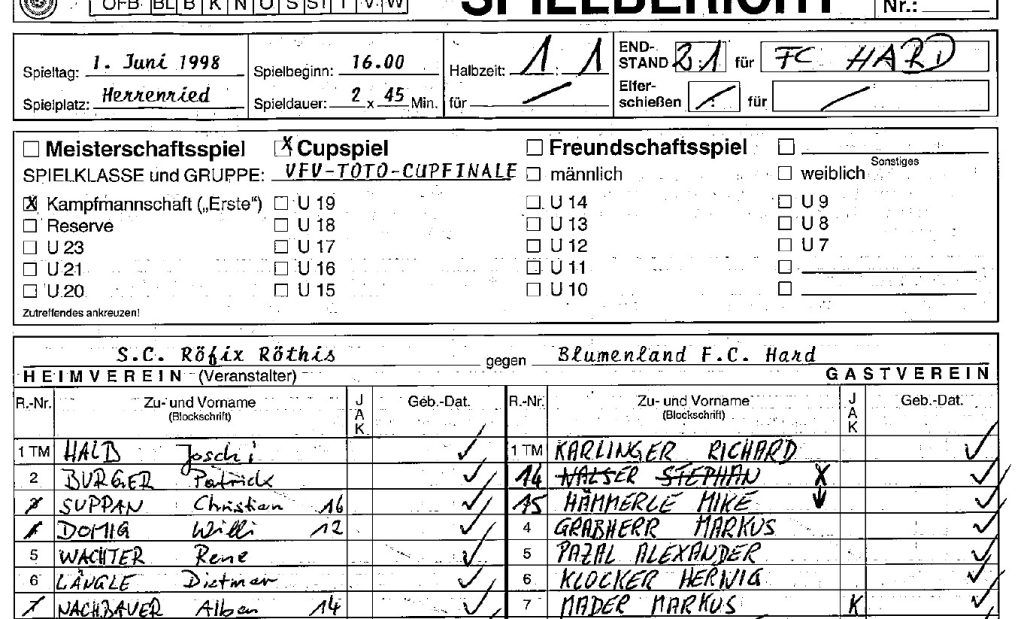 ÖFB BL B K N O S ST T V W SPIELBERICHT Nr.:
Spieltag: 1. Juni 1998 Spielbeginn: 16.00 Halbzeit: 1 : 1 END-STAND 2:1 für FC HARD
Spielplatz: Herrenried Spieldauer: 2 x 45 Min. für Elfer-schießen : für
Meisterschaftsspiel X Cupspiel Freundschaftsspiel Sonstiges
SPIELKLASSE und GRUPPE: VFV-TOTO-CUPFINALE männlich weiblich
X Kampfmannschaft („Erste") U 19 U 14 U 9
Reserve U 18 U 13 U 8
U 23 U 17 U 12 U 7
U 21 U 16 U 11
U 20 U 15 U 10
Zutreffendes ankreuzen!
S.C. Röfix Röthis gegen Blumenland F.C. Hard
HEIMVEREIN (Veranstalter) GASTVEREIN
R.-Nr. Zu- und Vorname (Blockschrift) JAK Geb.-Dat. R.-Nr. Zu- und Vorname (Blockschrift) JAK Geb.-Dat.
1 TM HALB Joschi 1 TM KARLINGER RICHARD
2 BURGER Patrick 14 STEPHAN X
SUPPAN Christian 16 15 HÄMMERLE MIKE
DOMIG Willi 12 4 GRABHERR MARKUS
5 WACHTER Rene 5 PAZAL ALEXANDER
6 LÄNGLE Dietmar 6 KLOCKER HERWIG
7 NACHBAUER Alben 14 7 MADER MARKUS K